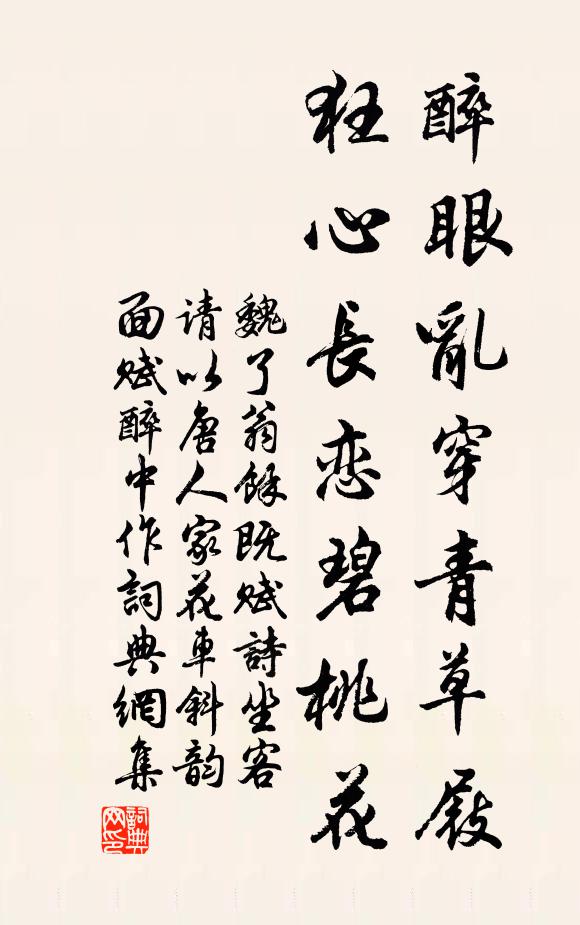 醉眼亂穿青草屐
狂心長恋碧桃花
魏了翁餘既赋詩坐客
请以唐人家花車斜韵
面赋醉中作詞典網集
詞典网印